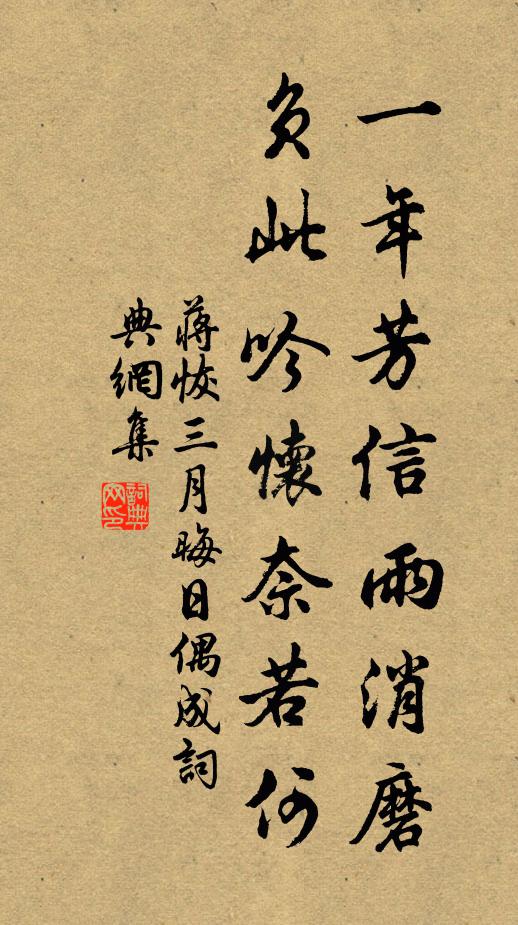 一年芳信雨消磨
負此吟懷奈若何
蔣恢三月晦日偶成詞
典網集
詞典網印